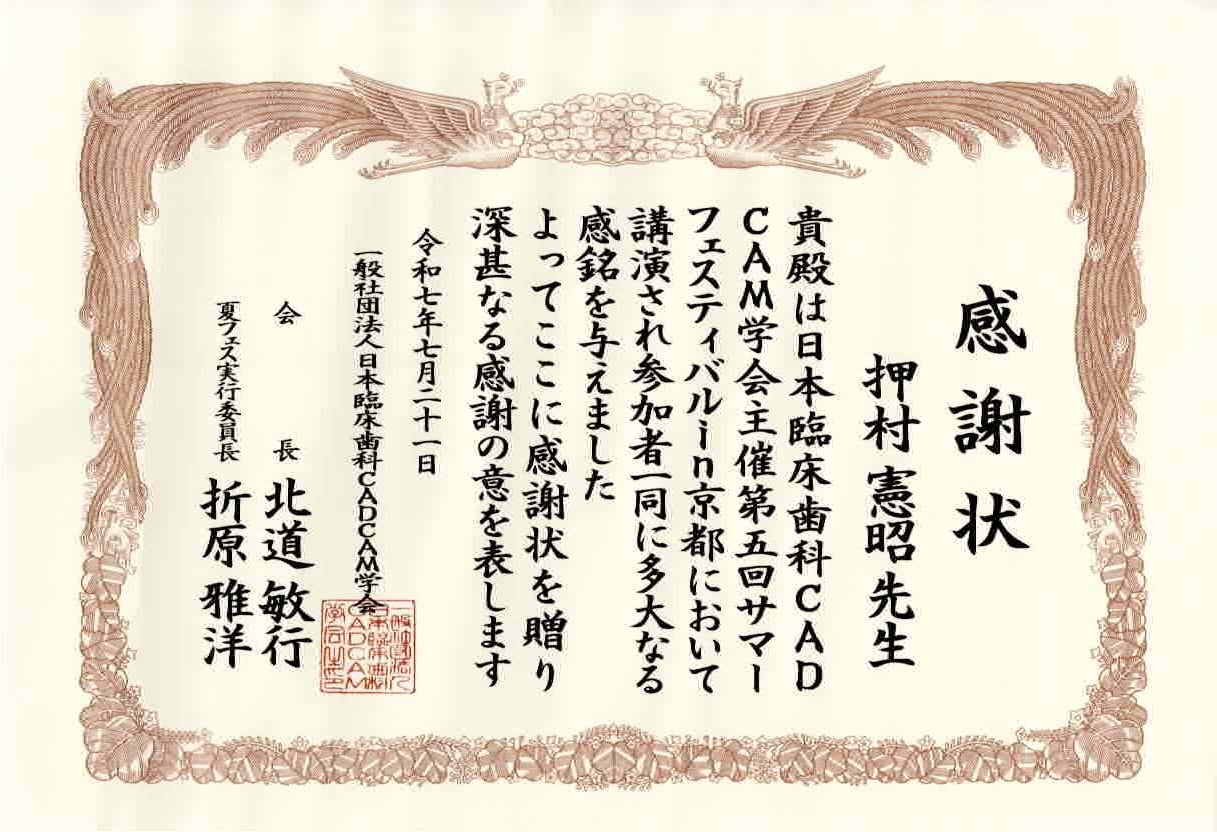 感謝状
押村憲昭先生
貴殿は日本臨床歯科CAD
CAM学会主催第五回サマー
フェスティバルin京都において
講演され参加者一同に多大なる
感銘を与えました
よってここに感謝状を贈り
深甚なる感謝の意を表します
令和七年七月二十一日
一般社団法人日本臨床歯科CADCAM学会
会長 北道敏行
夏フェス実行委員長 折原雅洋
一般社団法人
日本臨床歯科
CADCAM
学会